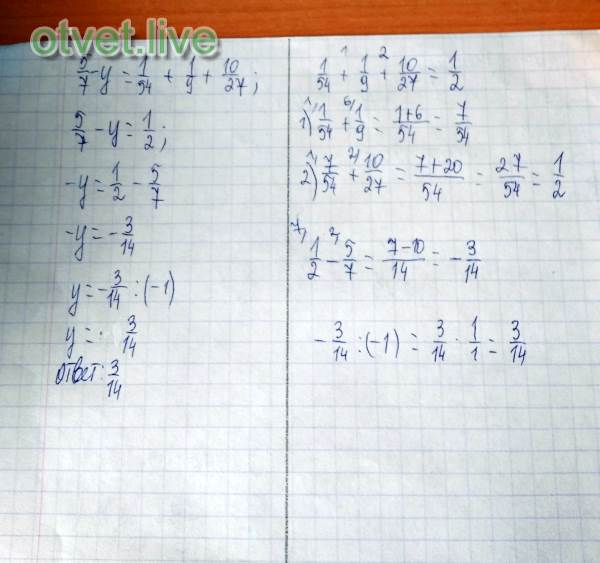 otvet.live
5/7 - y = 1/54 + 1/9 + 10/27;
5/7 - y = 1/2;
-y = 1/2 - 5/7
-y = -3/14
y = -3/14 : (-1)
y = 3/14
ответ: 3/14
1/54 +¹ 1/9 +² 10/27 = 1/2
1) ¹⁾1/54 + ⁶⁾1/9 = (1+6)/54 = 7/54
2) ¹⁾7/54 + ²⁾10/27 = (7+20)/54 = 27/54 = 1/2
⁷⁾1/2 - ²⁾5/7 = (7-10)/14 = -3/14
-3/14 : (-1) = 3/14 · 1/1 = 3/14